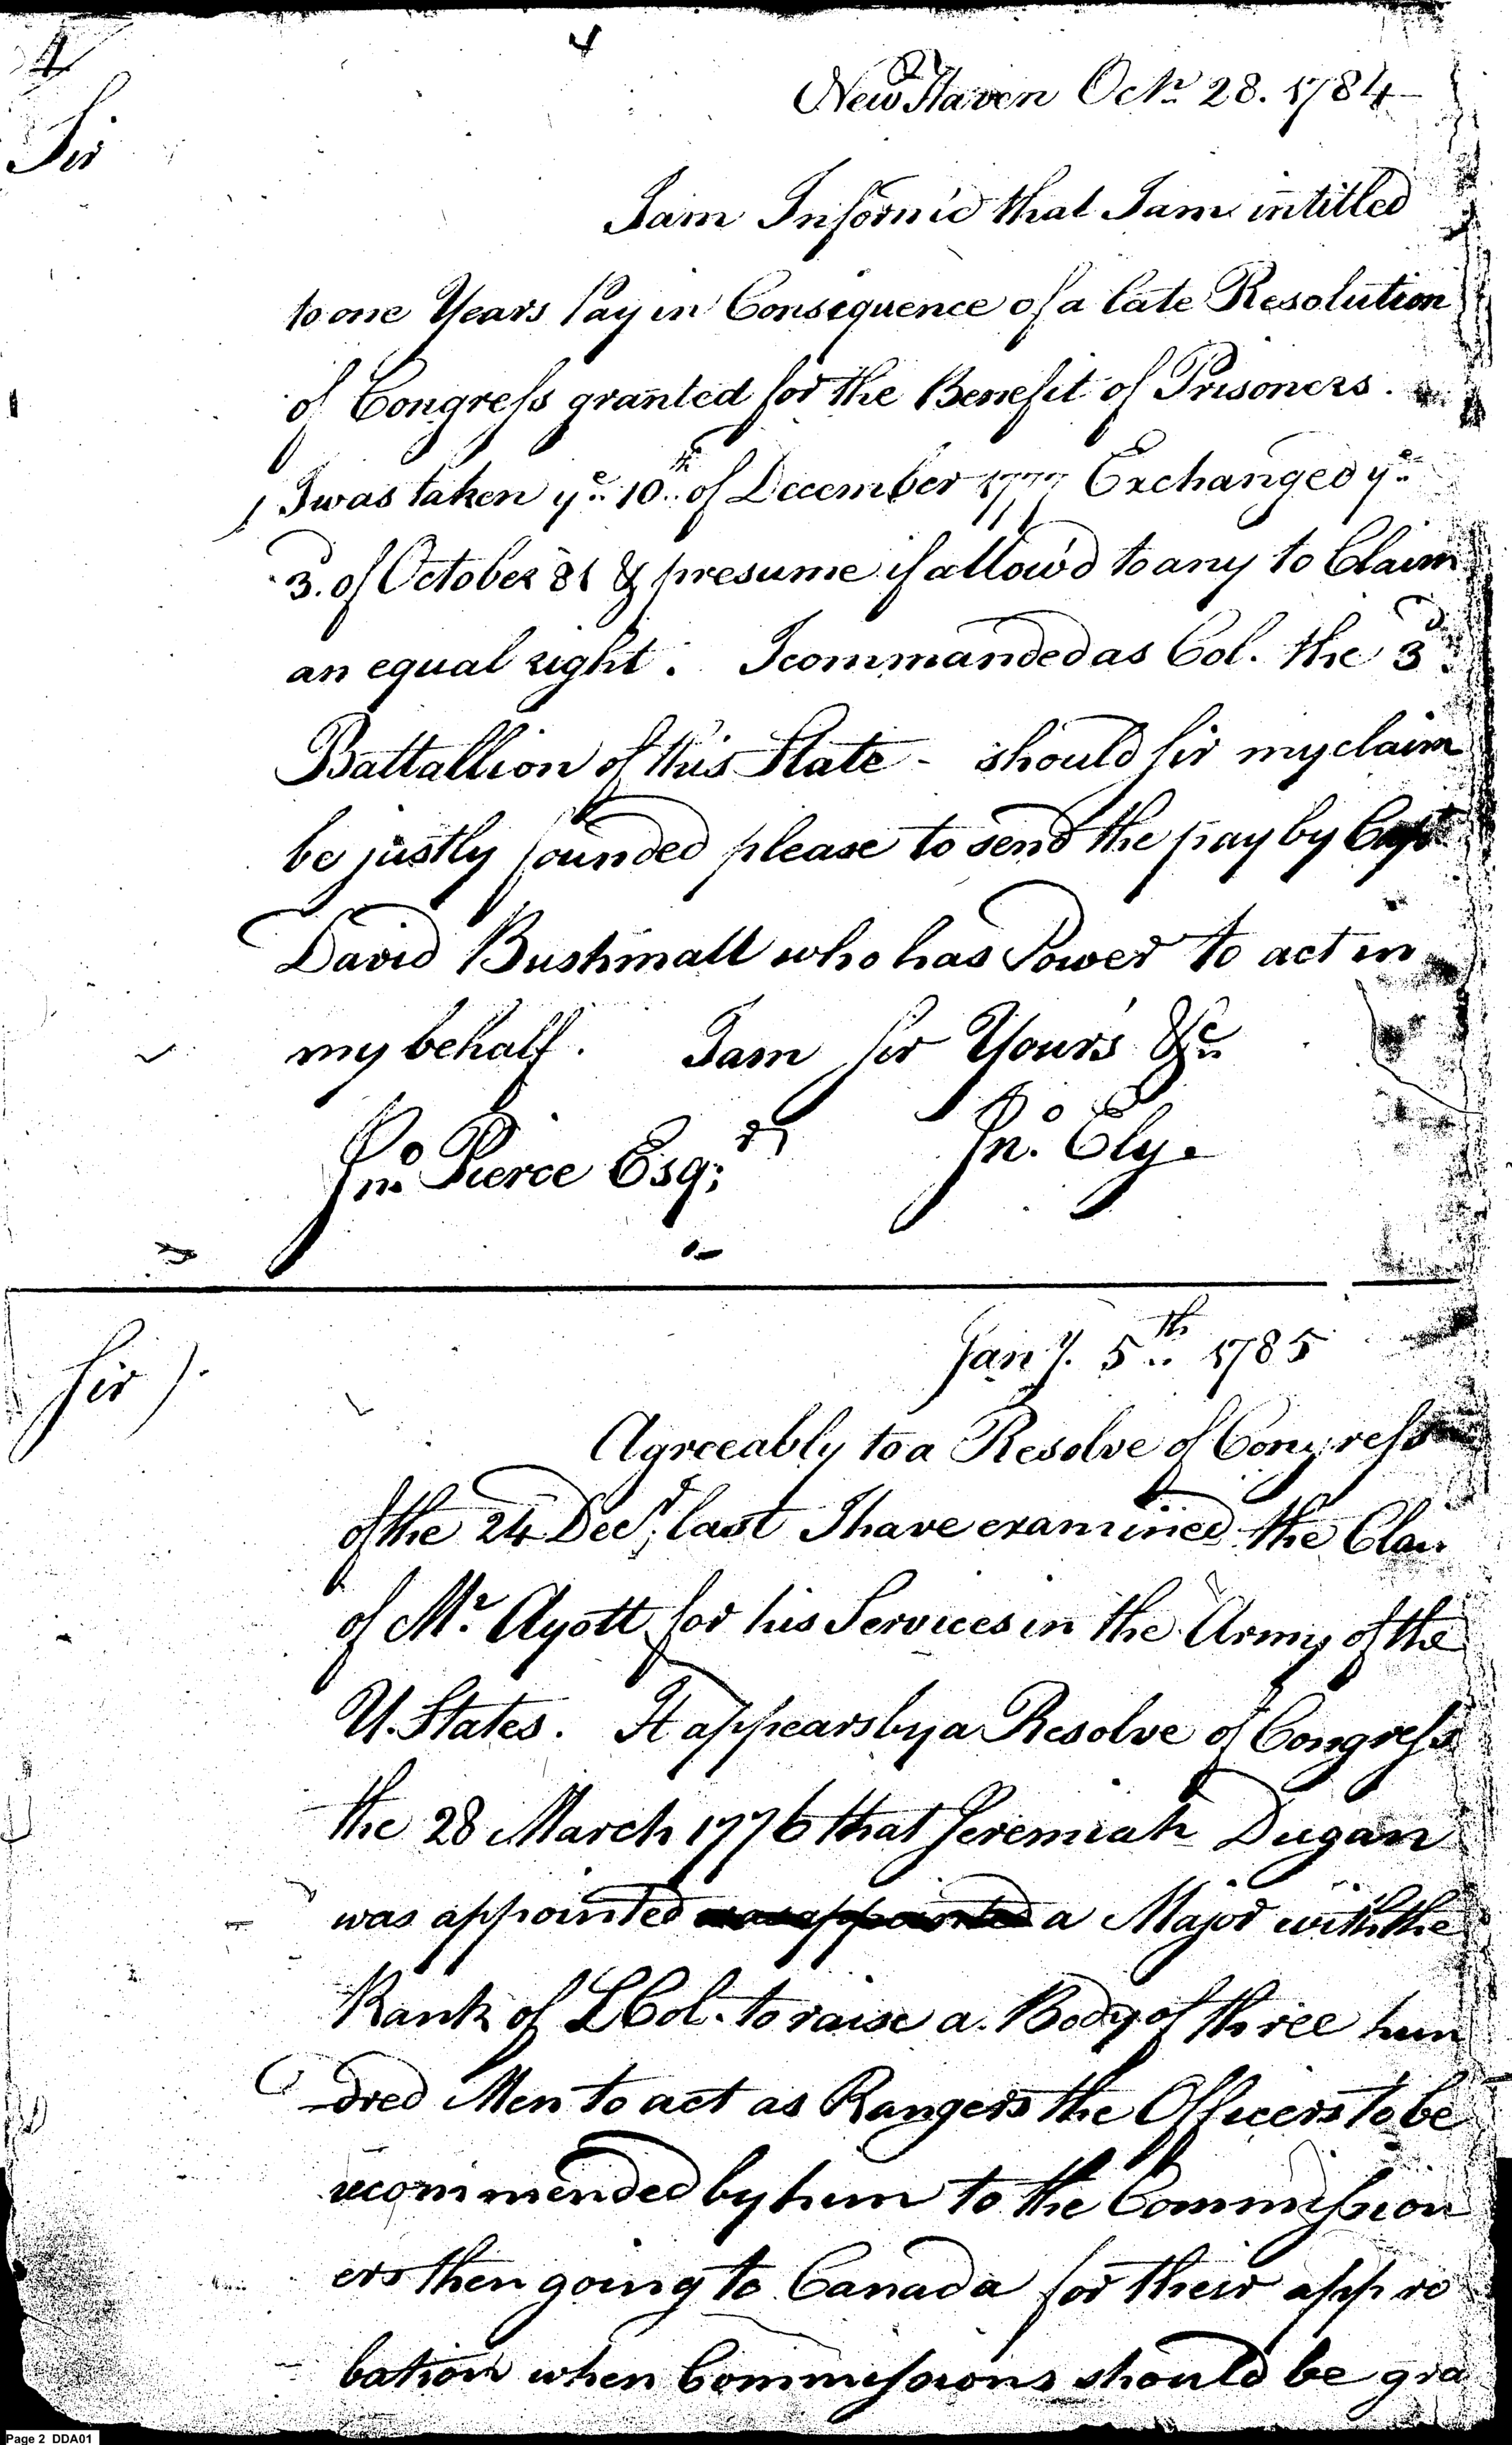 4
4
2
New Haven Octr 28. 1784
Sir
I am Inform'd that I am intitled
to one Years Pay in Consequence of a late Resolution
of Congress granted for the Benefit of Prisoners.
I was taken ye 10th of December 1777 Exchanged ye
3d. of October 81 & presume if allow'd to any to Claim
an equal right. I commanded as Col. the 3d
Battallion of this State - should sir my claim
be justly founded please to send the pay by Capt
David Bushnall who has Power to act in
my behalf. I am Sir Your's &c
Jno. Ely.
Jno. Pierce Esqr;
Jany. 5th 1785
Sir).
Agreeably to a Resolve of Congress
of the 24 Decr; last I have examined the Clai
of Mr. Ayott for his Services in the Army of the
U. States. It appears by a Resolve of Congress
the 28 March 1776 that Jeremiah Dugan
was appointed was appointed a Major with the
Rank of L Col. to raise a Body of three hun
dred Men to act as Rangers the Officers to be
recommended by him to the Commission
ers then going to Canada for their appro
bation when Commissions should be gra
Page 2 DDA01